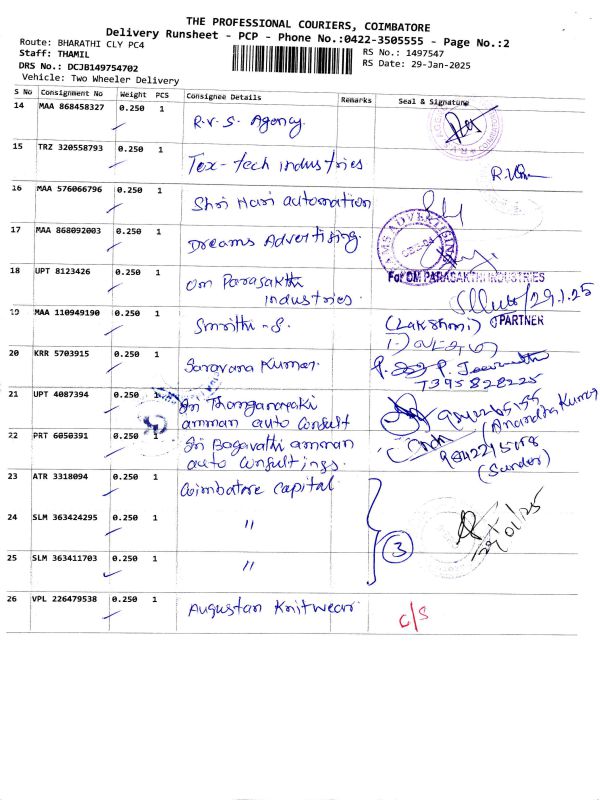 THE PROFESSIONAL COURIERS, COIMBATORE
Delivery Runsheet - PCP - Phone No.:0422-3505555 - Page No.:2
Route: BHARATHI CLY PC4
RS No.: 1497547
Staff: THAMIL
RS Date: 29-Jan-2025
DRS No.: DCJB149754702
Vehicle: Two Wheeler Delivery
S No Consignment No Weight PCS Consignee Details Remarks Seal & Signature
14 MAA 868458327 0.250 1 R.V.S. Agency.
15 TRZ 320558793 0.250 1 Tex-tech industries
16 MAA 576066796 0.250 1 Shri Hari automation
17 MAA 868092003 0.250 1 Dreams Advertising.
18 UPT 8123426 0.250 1 Om Parasakthi
industries.
For OM PARASAKTHI INDUSTRIES
29.1.25
PARTNER
19 MAA 110949190 0.250 1 Smrithi-S. (Lakshmi)
20 KRR 5703915 0.250 1 Saravana Kumar.
7395828225
21 UPT 4087394 0.250 1 Sri Thanganayaki
amman auto Consult
(Anandha Kumar)
22 PRT 6050391 0.250 1 Sri Bagavathi amman
auto Consultings.
(Sunder)
23 ATR 3318094 0.250 1 Coimbatore Capital.
24 SLM 363424295 0.250 1 "
3
29/01/25
25 SLM 363411703 0.250 1 "
26 VPL 226479538 0.250 1 Augustan Knitwear. C/S